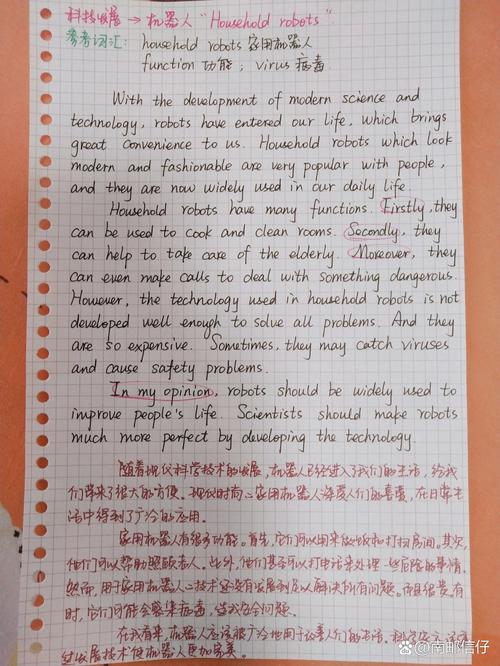 科技发展 → 机器人 "Household robots".
参考词汇: household robots 家用机器人
function 功能; virus 病毒
With the development of modern science and
technology, robots have entered our life, which brings
great convenience to us. Household robots which look
modern and fashionable are very popular with people,
and they are now widely used in our daily life.
Household robots have many functions. Firstly, they
can be used to cook and clean rooms. Secondly, they
can help to take care of the elderly. Moreover, they
can even make calls to deal with something dangerous.
However, the technology used in household robots is not
developed well enough to solve all problems. And they
are so expensive. Sometimes, they may catch viruses
and cause safety problems.
In my opinion, robots should be widely used to
improve people's life. Scientists should make robots
much more perfect by developing the technology.
随着现代科学技术的发展,机器人已经进入了我们的生活,给我
们带来了很大的方便。现代时尚的家用机器人深受人们的喜爱,在日常生
活中得到了广泛的应用。
家用机器人有很多功能。首先,它们可以用来做饭和打扫房间。其次,
他们可以帮助照顾老人。此外,他们甚至可以打电话来处理一些危险的事情。
然而,用于家用机器人的技术还没有发展到足以解决所有问题。而且很贵。有
时,它们可能会感染病毒,造成安全问题。
在我看来,机器人应该被广泛地用于改善人们的生活。科学家应该
过发展技术使机器人更加完美。
南邮信仔